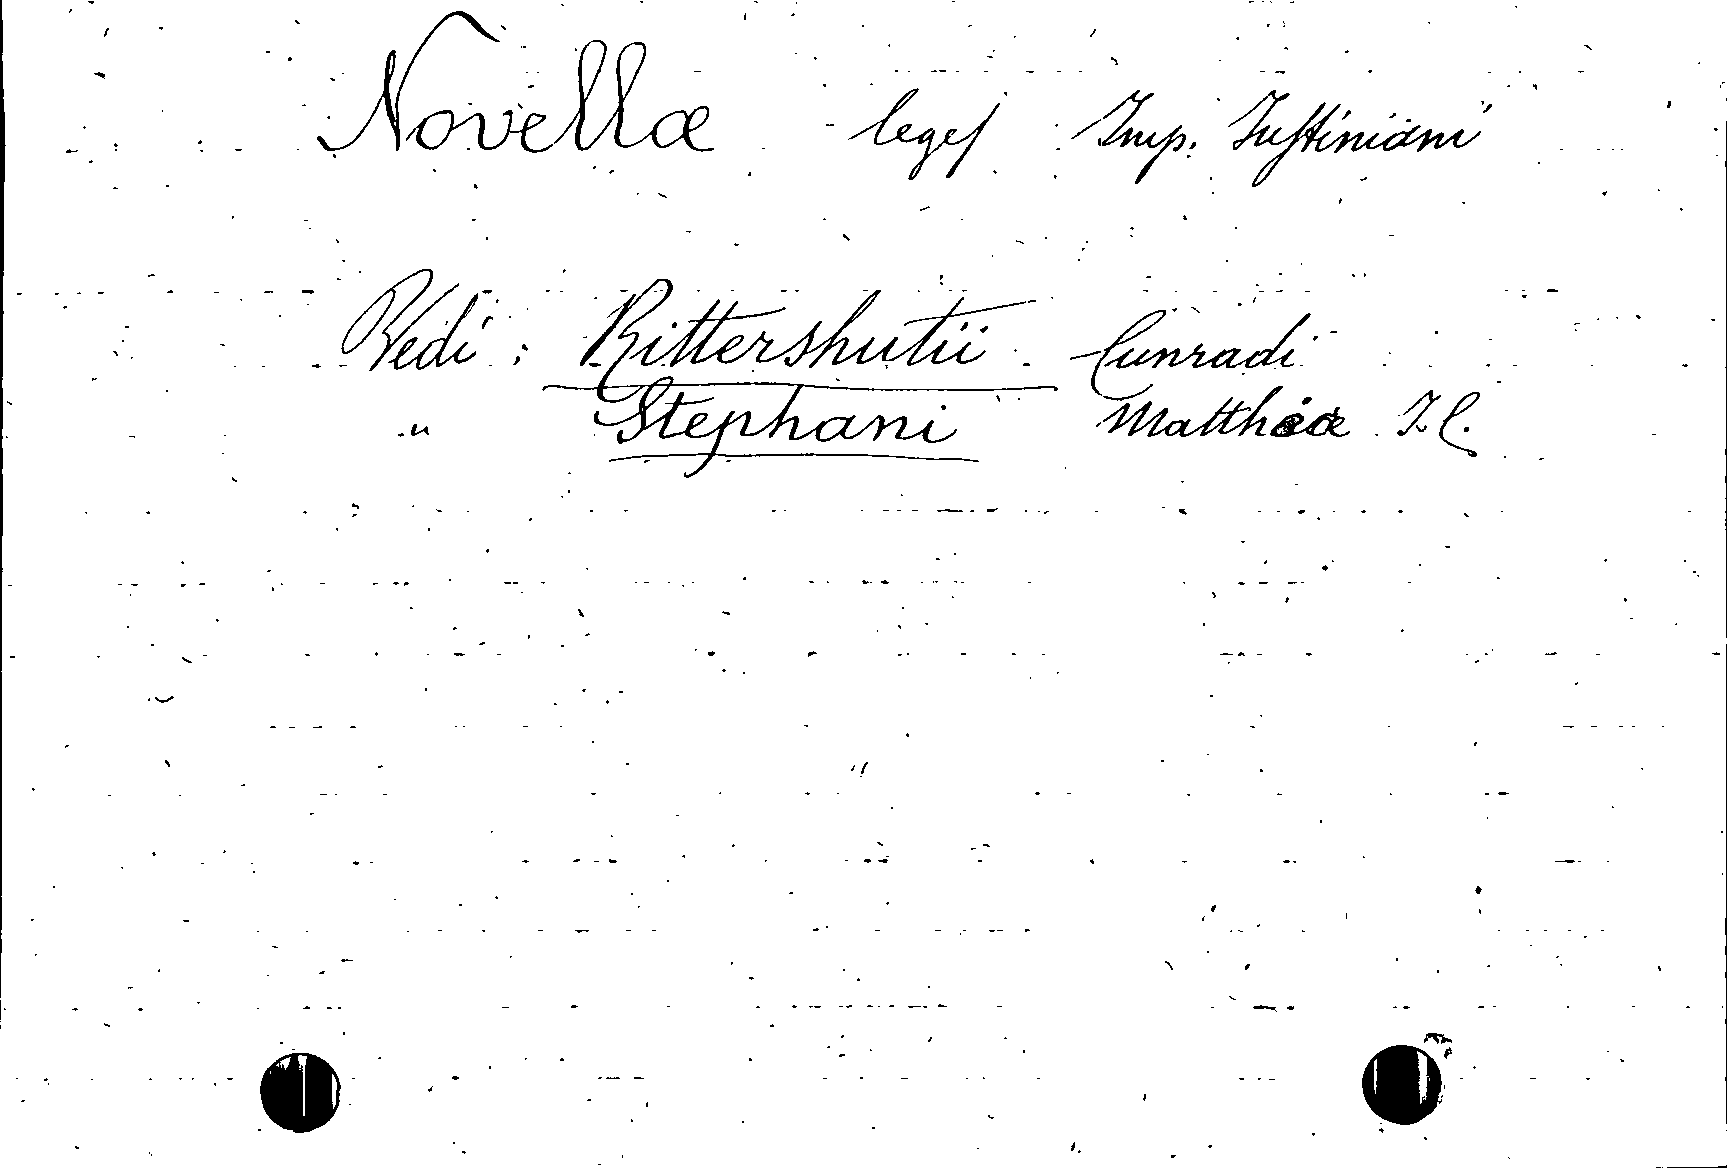 Novellæ leges Imp. Justiniani
Vedi : Rittershutii Cunradi
" Stephani Matthæa I.C.